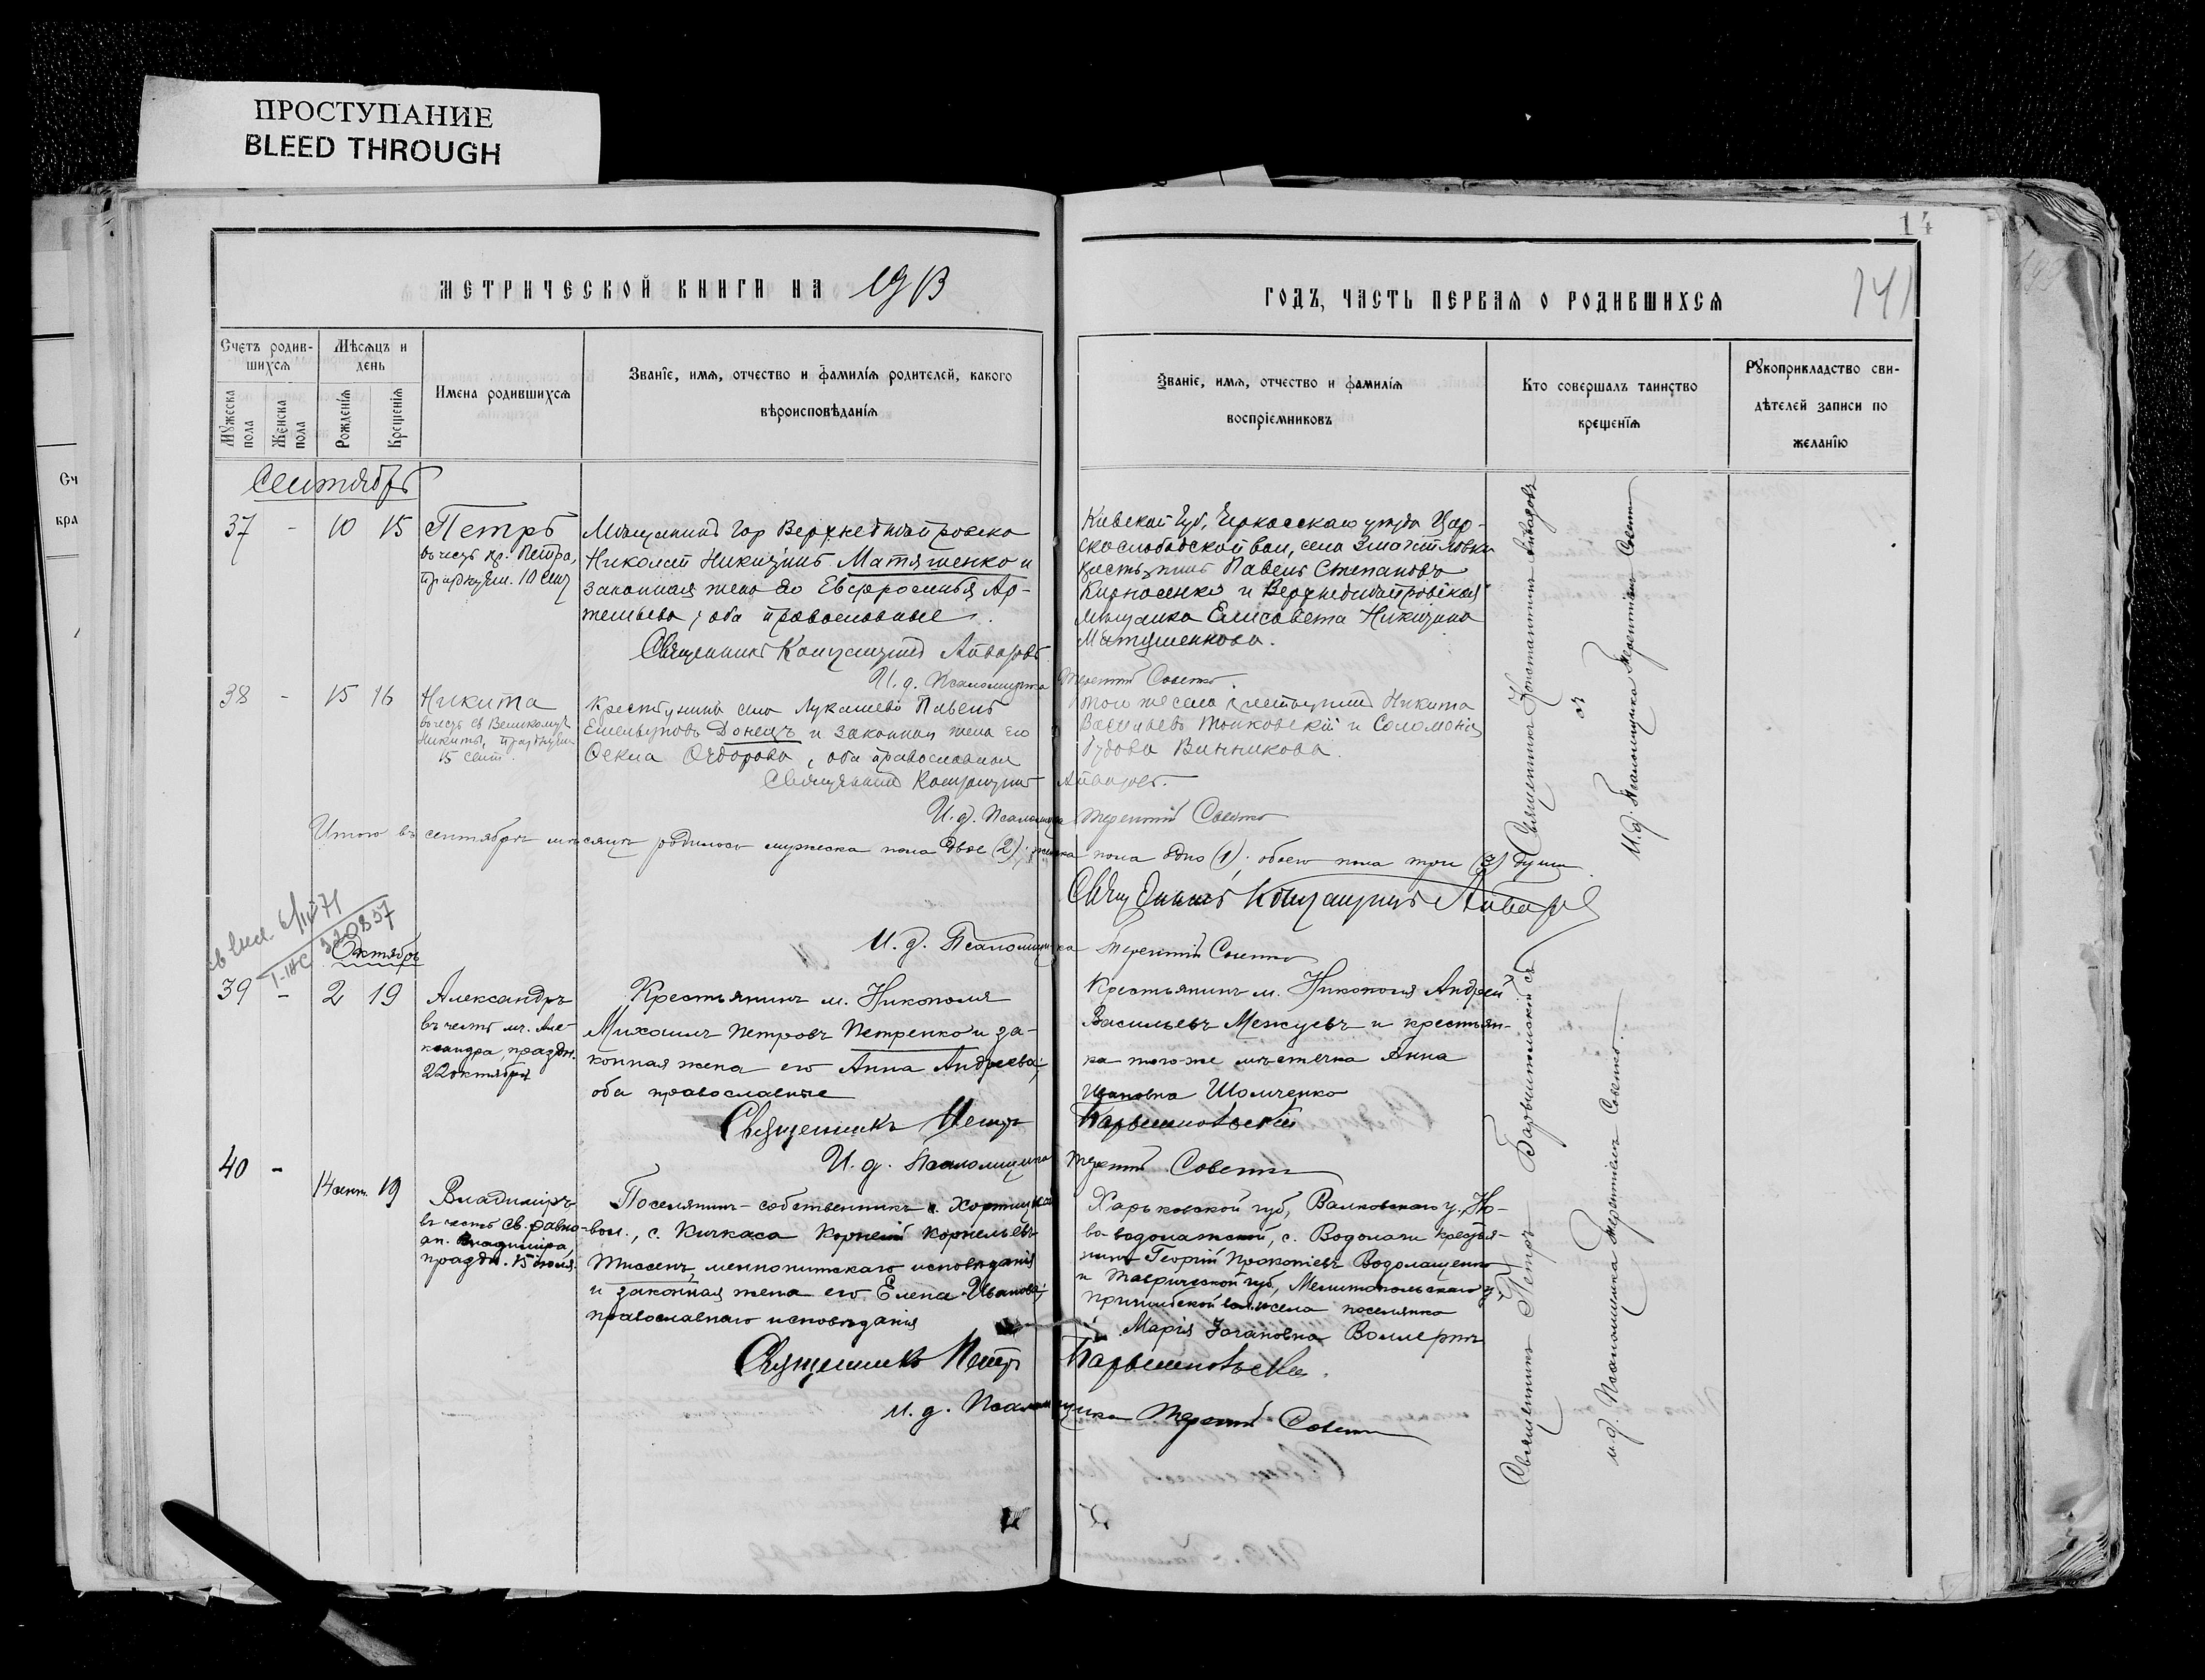 ПРОСТУПАНИЕ
BLEED THROUGH
14
141
МЕТРИЧЕСКОЙ КНИГИ НА 1913
ГОДЪ, ЧАСТЬ ПЕРВАЯ О РОДИВШИХСЯ
Счетъ родив-
шихся
Мѣсяцъ и
день
Мужеска пола
Женска пола
Рожденія
Крещенія
Имена родившихся
Званіе, имя, отчество и фамилія родителей, какого
вѣроисповѣданія
Званіе, имя, отчество и фамилія
воспріемниковъ
Кто совершалъ таинство
крещенія
Рукоприкладство сви-
дѣтелей записи по
желанію
Сч
кра
Сентябрь
37 - 10 15
Петръ
въ честь
Петра,
10 сент
Мѣщанинъ гор Верхнеднѣпровска
Николай Никитинъ Матяшенко и
законная жена его Евфросинья Ар-
темьева, оба православные.
Священникъ Константинъ Айваровъ
И. д. Псаломщика Терентій Совенко.
Кіевской губ, Черкасскаго уѣзда Цар-
скослободской вол, села
крестьянинъ Павелъ Степановъ
и Верхнеднѣпровская
мѣщанка Елисавета Никитина
Матушенкова.
38 - 15 16
Никита
въ честь св Великомуч
Никиты, празднуем
15 сент.
Крестьянинъ села Лукашево Павелъ
Емельяновъ Донецъ и законная жена его
Ѳекла Ѳедорова, оба православные
Священникъ Константинъ Айваровъ.
И. д. Псаломщика Терентій Совенко
того же села крестьянинъ Никита
Васильевъ и Соломонія
Винникова.
Итого въ сентябрѣ мѣсяцѣ родилось мужеска пола двое (2); женска пола одно (1); обоего пола три (3) души.
Священникъ Константинъ Айваровъ
И. д. Псаломщика Терентій Совенко
Октябрь
39 - 2 19
Александръ
въ честь мч. Але-
ксандра, праздн.
22 октября
Крестьянинъ м. Никополя
Михаилъ Петровъ Петренко и за-
конная жена его Анна Андреева;
оба православные
Священникъ Петръ Барвинковскій
И. д. Псаломщика Терентій Совенко
Крестьянинъ м. Никополя Андрей
Васильевъ Межуевъ и крестьян-
ка того-же мѣстечка Анна
Ивановна Шомченко
40 - 14 сент. 19
Владиміръ
въ честь св. равно-
ап. Владиміра,
праздн. 15 іюля.
Поселянинъ-собственникъ Хортицкой
вол., с. Кичкаса Корней Корнельевъ
Тиссенъ, меннонитскаго исповѣданія
и законная жена его Елена Иванова;
православнаго исповѣданія
Священникъ Петръ
И. д. Псаломщика Терентій Совенко
Харьковской губ, Валковскаго у., Но-
во-водолажской, с. Водолаги крестья-
нинъ Георгій Прокопіевъ Водолащенко
и Таврической губ, Мелитопольскаго у,
Пришибской вол. и села поселянка
Марія Іогановна
Священникъ Константинъ Айваровъ
И. д. Псаломщика Терентій Совенко
Священникъ Петръ
и. д. Псаломщика Терентій Совенко.